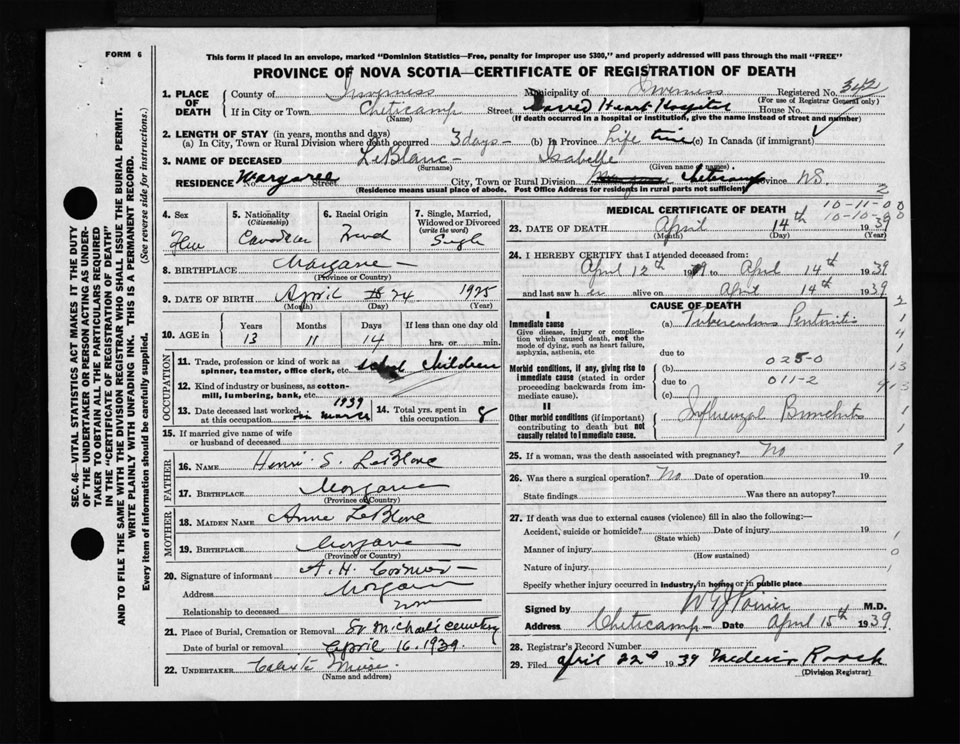 FORM 6
This form if placed in an envelope, marked "Dominion Statistics—Free, penalty for improper use $300," and properly addressed will pass through the mail "FREE"
PROVINCE OF NOVA SCOTIA—CERTIFICATE OF REGISTRATION OF DEATH
SEC. 46—VITAL STATISTICS ACT MAKES IT THE DUTY
OF THE UNDERTAKER OR PERSON ACTING AS UNDER-
TAKER TO OBTAIN ALL THE PARTICULARS REQUIRED
IN THE "CERTIFICATE OF REGISTRATION OF DEATH"
AND TO FILE THE SAME WITH THE DIVISION REGISTRAR WHO SHALL ISSUE THE BURIAL PERMIT.
WRITE PLAINLY WITH UNFADING INK. THIS IS A PERMANENT RECORD.
Every item of information should be carefully supplied. (See reverse side for instructions.)
1. PLACE OF DEATH
County of Inverness Municipality of Inverness Registered No. 342
(For use of Registrar General only)
If in City or Town Cheticamp Street Sacred Heart Hospital House No.
(Name) (If death occurred in a hospital or institution, give the name instead of street and number)
2. LENGTH OF STAY (in years, months and days)
(a) In City, Town or Rural Division where death occurred 3 days (b) In Province Life time (c) In Canada (if immigrant)
3. NAME OF DECEASED LeBlanc Isabelle
(Surname) (Given name or names)
RESIDENCE No. Margaree Street City, Town or Rural Division Cheticamp Province NS.
(Residence means usual place of abode. Post Office Address for residents in rural parts not sufficient) 2
4. Sex
5. Nationality (Citizenship) Canadian
6. Racial Origin French
7. Single, Married, Widowed or Divorced (write the word) Single
8. BIRTHPLACE Margaree
(Province or Country)
9. DATE OF BIRTH April 24 1925
(Month) (Day) (Year)
10. AGE in Years Months Days If less than one day old
13 11 14 hrs. or min.
OCCUPATION
11. Trade, profession or kind of work as spinner, teamster, office clerk, etc. school children
12. Kind of industry or business, as cotton-mill, lumbering, bank, etc.
13. Date deceased last worked at this occupation 1939 in March
14. Total yrs. spent in this occupation 8
15. If married give name of wife or husband of deceased
FATHER
16. NAME Henri S. LeBlanc
17. BIRTHPLACE Margaree
(Province or Country)
MOTHER
18. MAIDEN NAME Anne LeBlanc
19. BIRTHPLACE Margaree
(Province or Country)
20. Signature of informant A. H. Cormier
Address Margaree
Relationship to deceased
21. Place of Burial, Cremation or Removal St Michael's Cemetery
Date of burial or removal April 16, 1939.
22. UNDERTAKER Calixte
(Name and address)
MEDICAL CERTIFICATE OF DEATH
10-11-00
10-10-90
23. DATE OF DEATH April 14th 1939
(Month) (Day) (Year)
24. I HEREBY CERTIFY that I attended deceased from:
April 12th 1939 to April 14th 1939
and last saw her alive on April 14th 1939
CAUSE OF DEATH
I
Immediate cause
Give disease, injury or complication which caused death, not the mode of dying, such as heart failure, asphyxia, asthenia, etc
(a) Tuberculous Peritonitis
due to
Morbid conditions, if any, giving rise to immediate cause (stated in order proceeding backwards from immediate cause).
(b) 025-0
due to 011-2
(c)
II
Other morbid conditions (if important) contributing to death but not causally related to immediate cause.
Influenzal Bronchitis
25. If a woman, was the death associated with pregnancy? No
26. Was there a surgical operation? No Date of operation 19
State findings Was there an autopsy?
27. If death was due to external causes (violence) fill in also the following:—
Accident, suicide or homicide? Date of injury 19
(State which)
Manner of injury
(How sustained)
Nature of injury
Specify whether injury occurred in industry, in homes or in public place
Signed by Poirier M.D.
Address Cheticamp Date April 15th 1939
28. Registrar's Record Number
29. Filed April 22nd 1939 Roach
(Division Registrar)